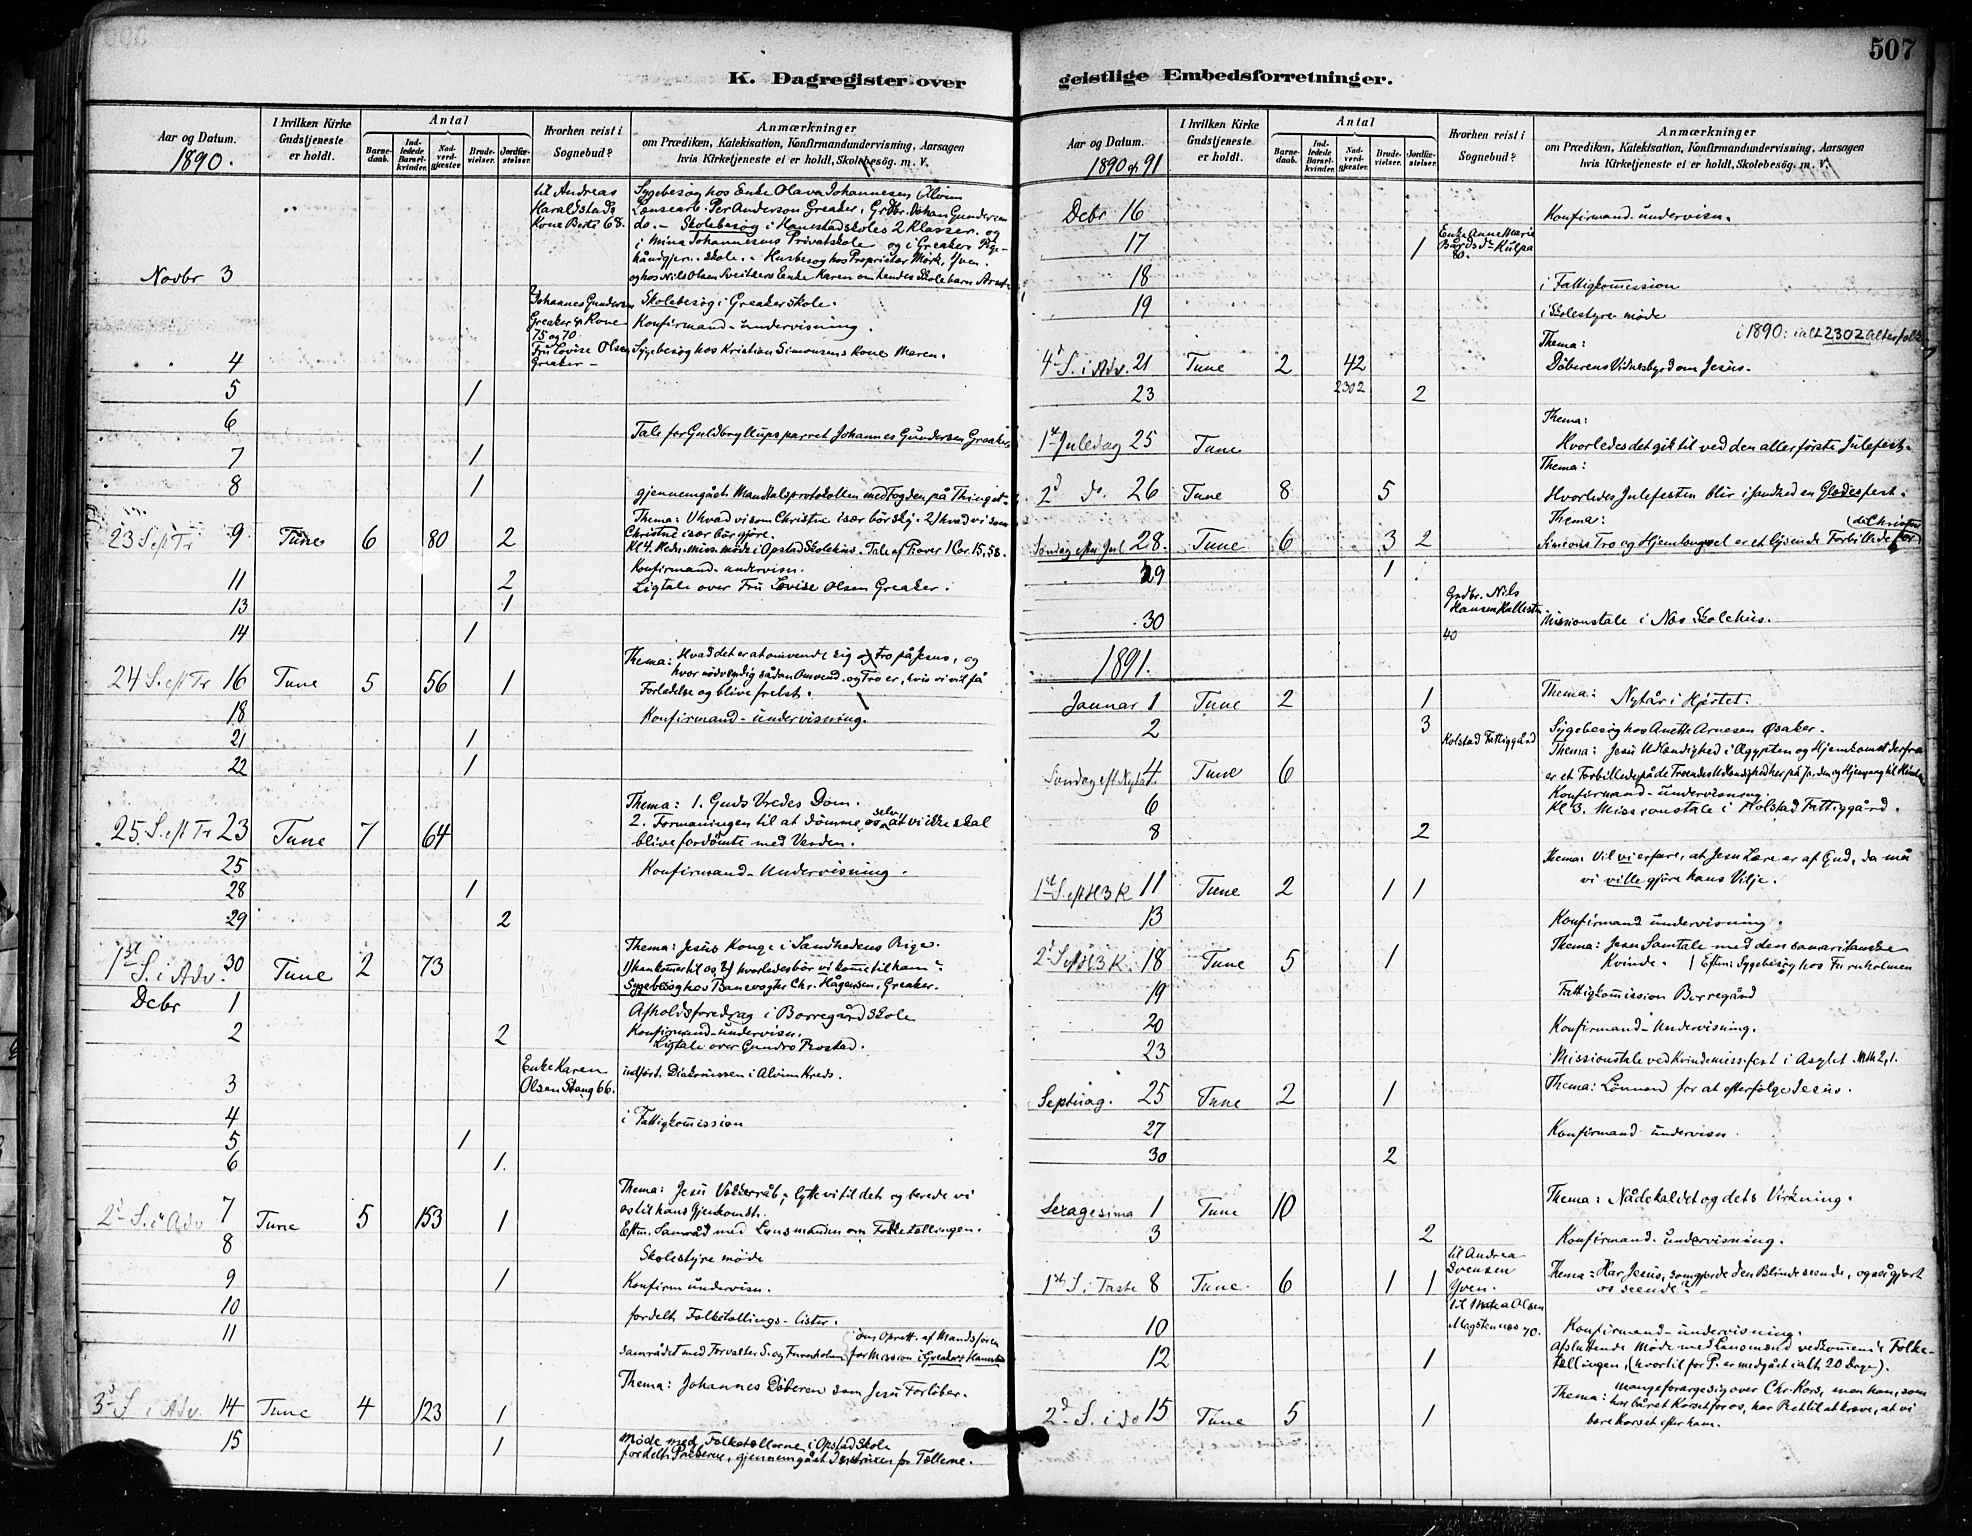 507
K. Dagregister over
Aar og Datum.
1890.
I hvilken Kirke
Gudstjeneste
er holdt.
Antal
Barne-
daab.
Ind-
ledede
Barsel-
kvinder.
Nad-
verd-
gjæster.
Brude-
vielser.
Jordfæ-
stelser.
Hvorhen reist i
Sognebud?
Anmærkninger
om Prædiken, Katekisation, Konfirmandundervisning, Aarsagen
hvis Kirketjeneste ei er holdt, Skolebesøg. m. V.
til Andreas
Haralstads
Kone Berte 68.
Sygebesøg hos Enke Olava Johannesen Alvim
Per Anderson Greaker, Grdbr. Johan Gundersen
do. – Skolebesøg i Hanestadskoles 2 Klasser. og
i Mina Johannesens Privatskole og i Greaker Pige-
håndgjern. skole. – Husbesøg hos Proprietær Mørk, Yven.
og hos Nils Olsen Enke Karen om hendes Skolebarn
Novbr 3
Johannes Gundersen
Greaker & Kone
75 og 70
Skolebesøg i Greaker skole.
Konfirmand-undervisning.
4
Fru Lovise Olsen
Greaker –
Sygebesøg hos Kristian Simonsens Kone Maren.
5 1
6
Tale for Guldbryllupsparret Johannes Gundersen Greaker
7 1
8 1
gjennemgåst Mandtalsprotokollen med Fogden på Thinget.
23 S. eft Tr 9 Tune 6 80 2
Thema: 1) hvad vi som Christne især bør sky. 2) hvad vi som
Christne især bør gjøre.
Kl 4. Miss. møde i Opstad Skolehus. Tale af P. over 1 Cor. 15, 58.
11 2
Konfirmand-undervisn.
Ligtale over Fru Lovise Olsen Greaker.
13 1
14 1
24 S. eft Tr 16 Tune 5 56 1
Thema: Hvad det er at omvende sig og Tro på Jesus, og
hvor nødvendig sådan Omvend. og Tro er, hvis vi vil få
Forladelse og blive frelst.
18
Konfirmand-undervisning.
21 1
22 1
25. S. eft Tr 23 Tune 7 64
Thema: 1. Guds Vredes Dom.
2. Formaningen til at dømme os selv at vi ikke skal
blive fordømte med Verden.
25
Konfirmand-Undervisning.
28 1
29 2
1st S. i Adv. 30 Tune 2 73
Thema: Jesus Konge i Sandhedens Rige.
1) han kommer til os 2) hvorledes bør vi komme til ham?
Sygebesøg hos Banevogter Chr. Hågensen, Greaker.
Debr 1
Afholdsforedrag i Borregård Skole
2 2
Konfirmand-undervisn.
Ligtale over Gundro Rostad.
3
Enke Karen
Olsen Stang 66.
indført. Diakonissen i Alvim Kreds.
4
i Fattigkommission
5 1
6 1.
2d S. i Adv 7 Tune 5 153 1
Thema: Jesu Vækkerråb; lytte vi til det og berede vi
os til hans Gjenkomst.
Eftm. Samråd med Lensmanden om Folketællingen.
8
Skolestyre møde
9 1
Konfirm undervisn.
10
fordelt Folketællings-lister.
11
samrådet med Forvalter S. og Furuholmen (om Oprett. af Mandsforen
for Mission i Greaker & Hannestad
3d S i Adv. 14 Tune 4 123 1
Thema: Johannes Døberen som Jesu Forløber.
15 1
Møde med Folketællerne i Opstad Skole
fordelt Papirerne, gjennemgåst Instruxen for Tællerne.
geistlige Embedsforretninger.
Aar og Datum.
1890 og 91
I hvilken Kirke
Gudstjeneste
er holdt.
Antal
Barne-
daab.
Ind-
ledede
Barsel-
kvinder.
Nad-
verd-
gjæster.
Brude-
vielser.
Jordfæ-
stelser.
Hvorhen reist i
Sognebud?
Anmærkninger
om Prædiken, Katekisation, Konfirmandundervisning, Aarsagen
hvis Kirketjeneste ei er holdt, Skolebesøg. m. V.
Debr 16
Konfirmand-undervisn.
17 1
Enke Anne Marie
Bårdsdtr Kulpa
80.
18
i Fattigkommission
19
i Skolestyre-møde
i 1890: ialt 2302
4d S. i Adv. 21 Tune 2 42
Thema:
Døberens Vidnesbyrd om Jesus.
23 2302 2
1st Juledag 25 Tune
Thema:
Hvorledes det gik til ved den allerførste Julefest.
2d do. 26 Tune 8 5
Thema:
Hvorledes Julefesten blir i sandhed en Glædesfest.
Søndag efter Jul 28. Tune 6 3 2
Thema:
Simeons Tro og Hjemlængsel er et lysende Forbillede for
(de Christne
29 1
30
Grdbr. Nils
Hansen
40
Missionstale i Nes Skolehus.
1891.
Januar 1 Tune 2 1
Thema: Nytår i Hjertet.
2 3
Kolstad Fattiggård
Sygebesøg hos Anette Arnesen Øsaker.
Søndag eft Nytår 4 Tune 6
Thema: Jesu Udlændighed i Ægypten og Hjemkomst derfra
er et Forbillede på de Troendes Udlændighed her på Jorden og Hjemgang til Himlen
6
Konfirmand-undervisning.
Kl 3. Missionstale i Kolstad Fattiggård.
8 2
1st S. eft H3K 11 Tune 2 1 1
Thema: Vil vi erfare, at Jesu Lære er af Gud, da må
vi ville gjøre hans Vilje.
13
Konfirmand undervisning.
2d S eft H3K. 18 Tune 5 1
Thema: Jesu Samtale med den samaritanske
Kvinde. Eftm: Sygebesøg hos Furuholmen
19
Fattigkommission Borregård
20
Konfirmand-Undervisning.
23
Missionstale ved Kvindemiss. fest i Asylet Mth 2, 1.
Septuag. 25 Tune 2 1
Thema: Lønnen for at efterfølge Jesus.
27
Konfirmand undervisn
30 2
Sexagesima 1 Tune 10
Thema: Nådekaldet og dets Virkning.
3 2
Konfirmand-undervisning.
1st S. i Faste 8 Tune 6 1 1
til Andrea
Svensen
Yven.
Thema: Har Jesus, som gjorde den Blinde seende, også gjort
os seende?
10
til Mathea Olsen
Magstennæs 70.
Konfirmand-undervisning.
12 1
Afsluttende Møde med Lensmænd vedkommend Folke-
tællingen, (hvortil for P. er medgåst ialt 20 Dage).
2d S. i do 15 Tune 5 1
Thema: mange forarge sig over Chr. Kors, men han, som
har båret Korset for os, har Ret til at kræve, at vi
bære Korset efter ham.